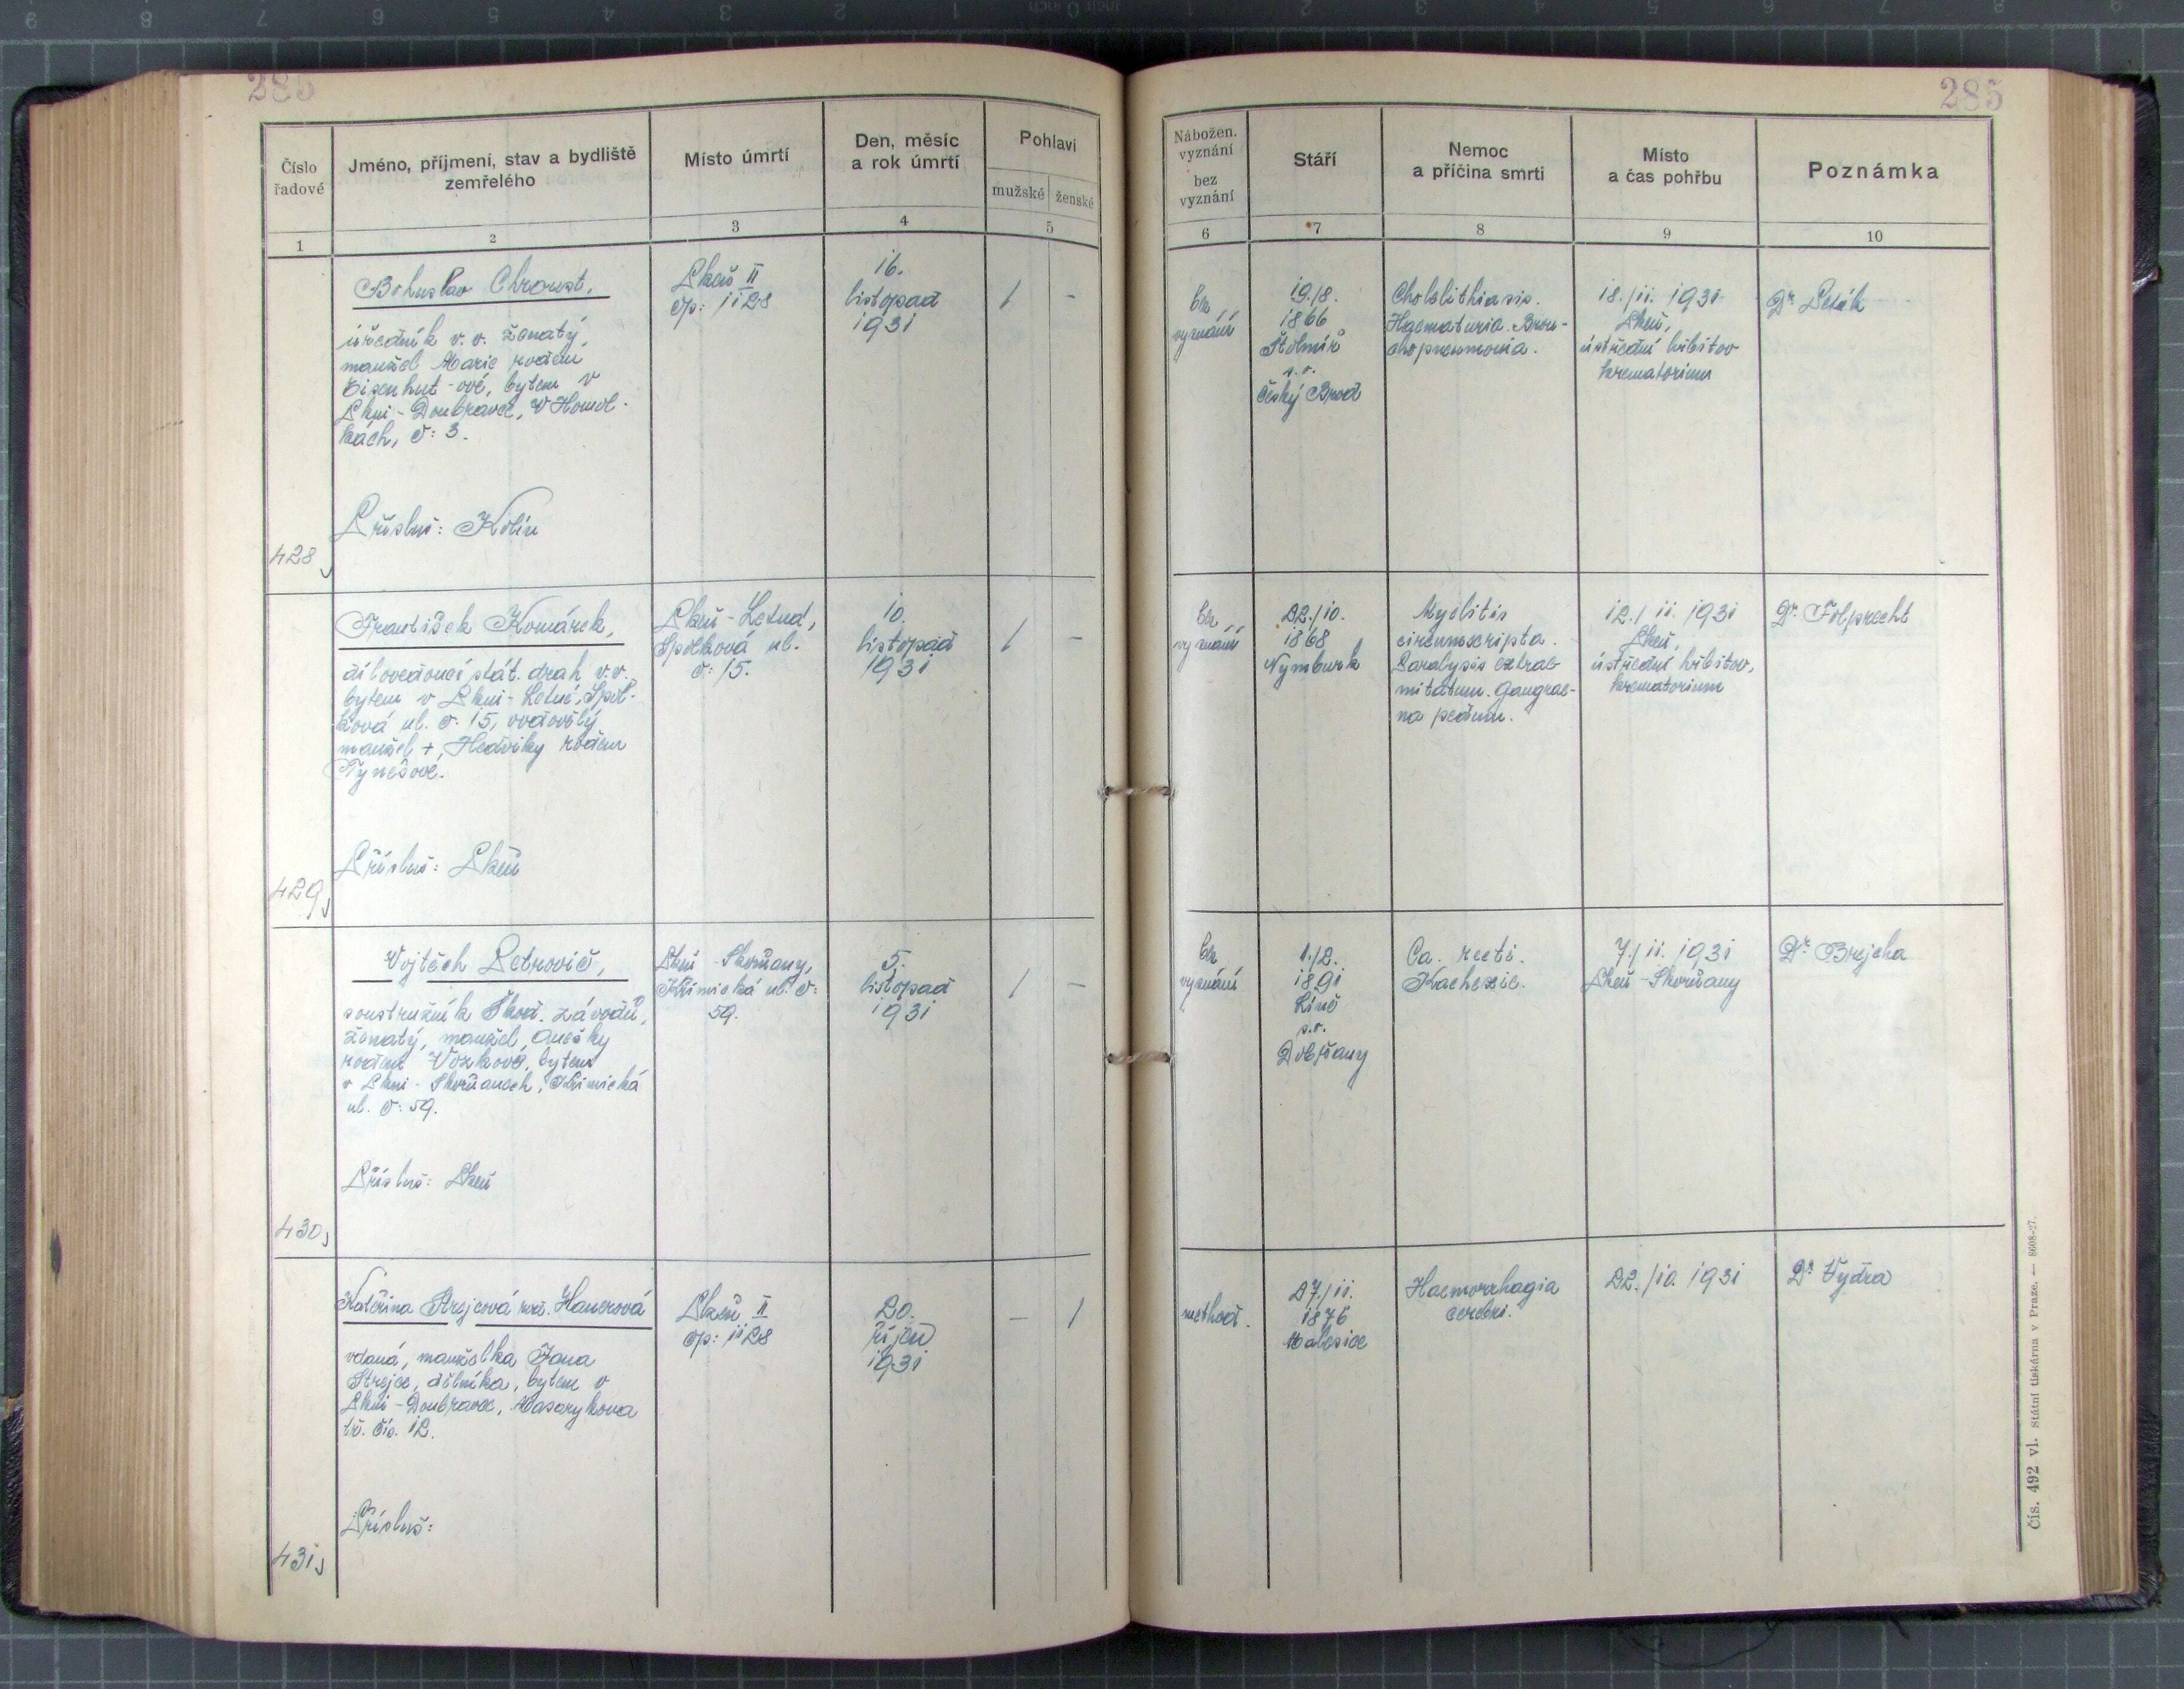 285
285
Číslo
řadové
Jméno, příjmení, stav a bydliště
zemřelého
Místo úmrtí
Den, měsíc
a rok úmrtí
Pohlaví
mužské
ženské
1
2
3
4
5
Nábožen.
vyznání
bez
vyznání
Stáří
Nemoc
a příčina smrti
Místo
a čas pohřbu
Poznámka
6
7
8
9
10
428
Bohuslav Chroust,
úředník v. v. ženatý,
manžel Marie rozen
Eisenhut-ové, bytem v
Plzni - Doubravce, V Homol-
kách, č: 3.
Přísluš: Kolín
Plzeň II
čp: 1128
16.
listopad
1931
1
-
bez
vyznání
19./8.
1866
Štolmíř
p. o.
Český Brod
Cholelithiasis.
Haematuria. Bron-
chopneumonia.
18./11. 1931
Plzeň,
ústřední hřbitov
krematorium
Dr. Peták
429
František Komárek,
dílovedoucí stát. drah v. v.
bytem v Plzni - Letné, Spol-
ková ul. č. 15, ovdovělý
manžel + Hedviky rozen
Týnešové.
Přísluš: Plzeň
Plzeň - Letná,
Spolková ul.
č: 15.
10.
listopad
1931
1
-
bez
vyznání
22./10.
1868
Nymburk
Myelitis
circumscripta.
Paralysis extrae-
mitatum. Gangrae-
na pedum.
12./11. 1931
Plzeň,
ústřední hřbitov,
krematorium
Dr. Folprecht
430
Vojtěch Petrovič,
soustružník Škod. závodů,
ženatý, manžel Anežky
rozené Vozkové, bytem
v Plzni - Skvrňanech, Křimická
ul. č: 59.
Přísluš: Plzeň
Plzeň - Skvrňany,
Křimická ul. č:
59.
5.
listopad
1931
1
-
bez
vyznání
1./2.
1891
Líně
p. o.
Dobřany
Ca. recti.
Kachexie.
7./11. 1931
Plzeň - Skvrňany
Dr. Brejcha
431
Kateřina Strejcová roz. Hanerová
vdaná, manželka Jana
Strejce, dělníka, bytem v
Plzni - Doubravce, Masarykova
tř. čís. 12.
Přísluš:
Plzeň II
čp: 1128
20.
říjen
1931
-
1
method.
27./11.
1876
Malesice
Haemorrhagia
cerebri.
22./10. 1931
Dr. Vydra
Čís. 492 vl. Státní tiskárna v Praze. — 8608-27.